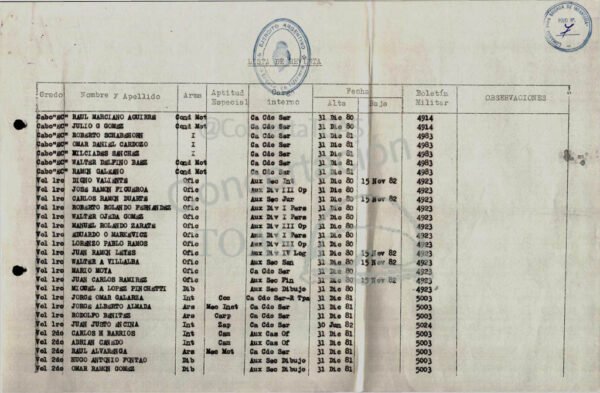 EJERCITO ARGENTINO
FOLIO Nº
7
LISTA DE REVISTA
Grado Nombre y Apellido Arma Aptitud Especial Cargo interno Fecha Alta Baja Boletín Militar OBSERVACIONES
Cabo"EC" RAUL MARCIANO AGUIRRE Cond Mot Ca Cdo Ser 31 Dic 80 4914
Cabo"EC" JULIO G GOMEZ Cond Mot Ca Cdo Ser 31 Dic 80 4914
Cabo"EC" ROBERTO I Ca Cdo Ser 31 Dic 81 4983
Cabo"EC" OMAR DANIEL CARDOZO I Ca Cdo Ser 31 Dic 81 4983
Cabo"EC" MILCIADES SANCHEZ I Ca Cdo Ser 31 Dic 81 4983
Cabo"EC" WALTER DELFINO BAEZ Cond Mot Ca Cdo Ser 31 Dic 81 4983
Cabo"EC" RAMON GALEANO Cond Mot Ca Cdo Ser 31 Dic 81 4983
Vol 1ro DIGNO VALIENTE Ofic Aux Sec Int 31 Dic 80 15 Nov 82 4923
Vol 1ro JOSE RAMON FIGUEROA Ofic Aux Div III Op 31 Dic 80 4923
Vol 1ro CARLOS RAMON DUARTE Ofic Aux Sec Jur 31 Dic 80 15 Nov 82 4923
Vol 1ro ROBERTO ROLANDO FERNANDEZ Ofic Aux Div I Pers 31 Dic 80 4923
Vol 1ro WALTER OJEDA GOMEZ Ofic Aux Div I Pers 31 Dic 80 4923
Vol 1ro MANUEL ROLANDO ZARATE Ofic Aux Div III Op 31 Dic 80 4923
Vol 1ro EDUARDO O MARKEVICZ Ofic Aux Div I Pers 31 Dic 80 4923
Vol 1ro LORENZO PABLO RAMOS Ofic Aux Div III Op 31 Dic 80 4923
Vol 1ro JUAN RAMON LEYES Ofic Aux Div IV Log 31 Dic 80 15 Nov 82 4923
Vol 1ro WALTER A VILLALBA Ofic Aux Sec San 31 Dic 80 15 Nov 82 4923
Vol 1ro MARIO MOYA Ofic Ca Cdo Ser 31 Dic 80 4923
Vol 1ro JUAN CARLOS RAMIREZ Ofic Aux Sec Fin 31 Dic 80 15 Nov 82 4923
Vol 1ro MIGUEL A LOPEZ PINCHETTI Dib Aux Sec Dibujo 31 Dic 80 4923
Vol 1ro JORGE OMAR GALARZA Int Coc Ca Cdo Ser-R Tpa 31 Dic 81 5003
Vol 1ro JORGE ALBERTO ALMADA Ars Mec Inst Ca Cdo Ser 31 Dic 81 5003
Vol 1ro RODOLFO BENITEZ Ars Carp Ca Cdo Ser 31 Dic 81 5003
Vol 1ro JUAN JUSTO ENCINA Int Zap Ca Cdo Ser 30 Jun 82 5024
Vol 2do CARLOS H BARRIOS Int Cam Aux Cas Of 31 Dic 81 5003
Vol 2do ADRIAN CANEDO Int Cam Aux Cas Of 31 Dic 81 5003
Vol 2do RAUL ALVARENGA Ars Mec Mot Ca Cdo Ser 31 Dic 81 5003
Vol 2do HUGO ANTONIO FONTAO Dib Aux Sec Dibujo 31 Dic 81 5003
Vol 2do OMAR RAMON GOMEZ Dib Aux Sec Dibujo 31 Dic 81 5003